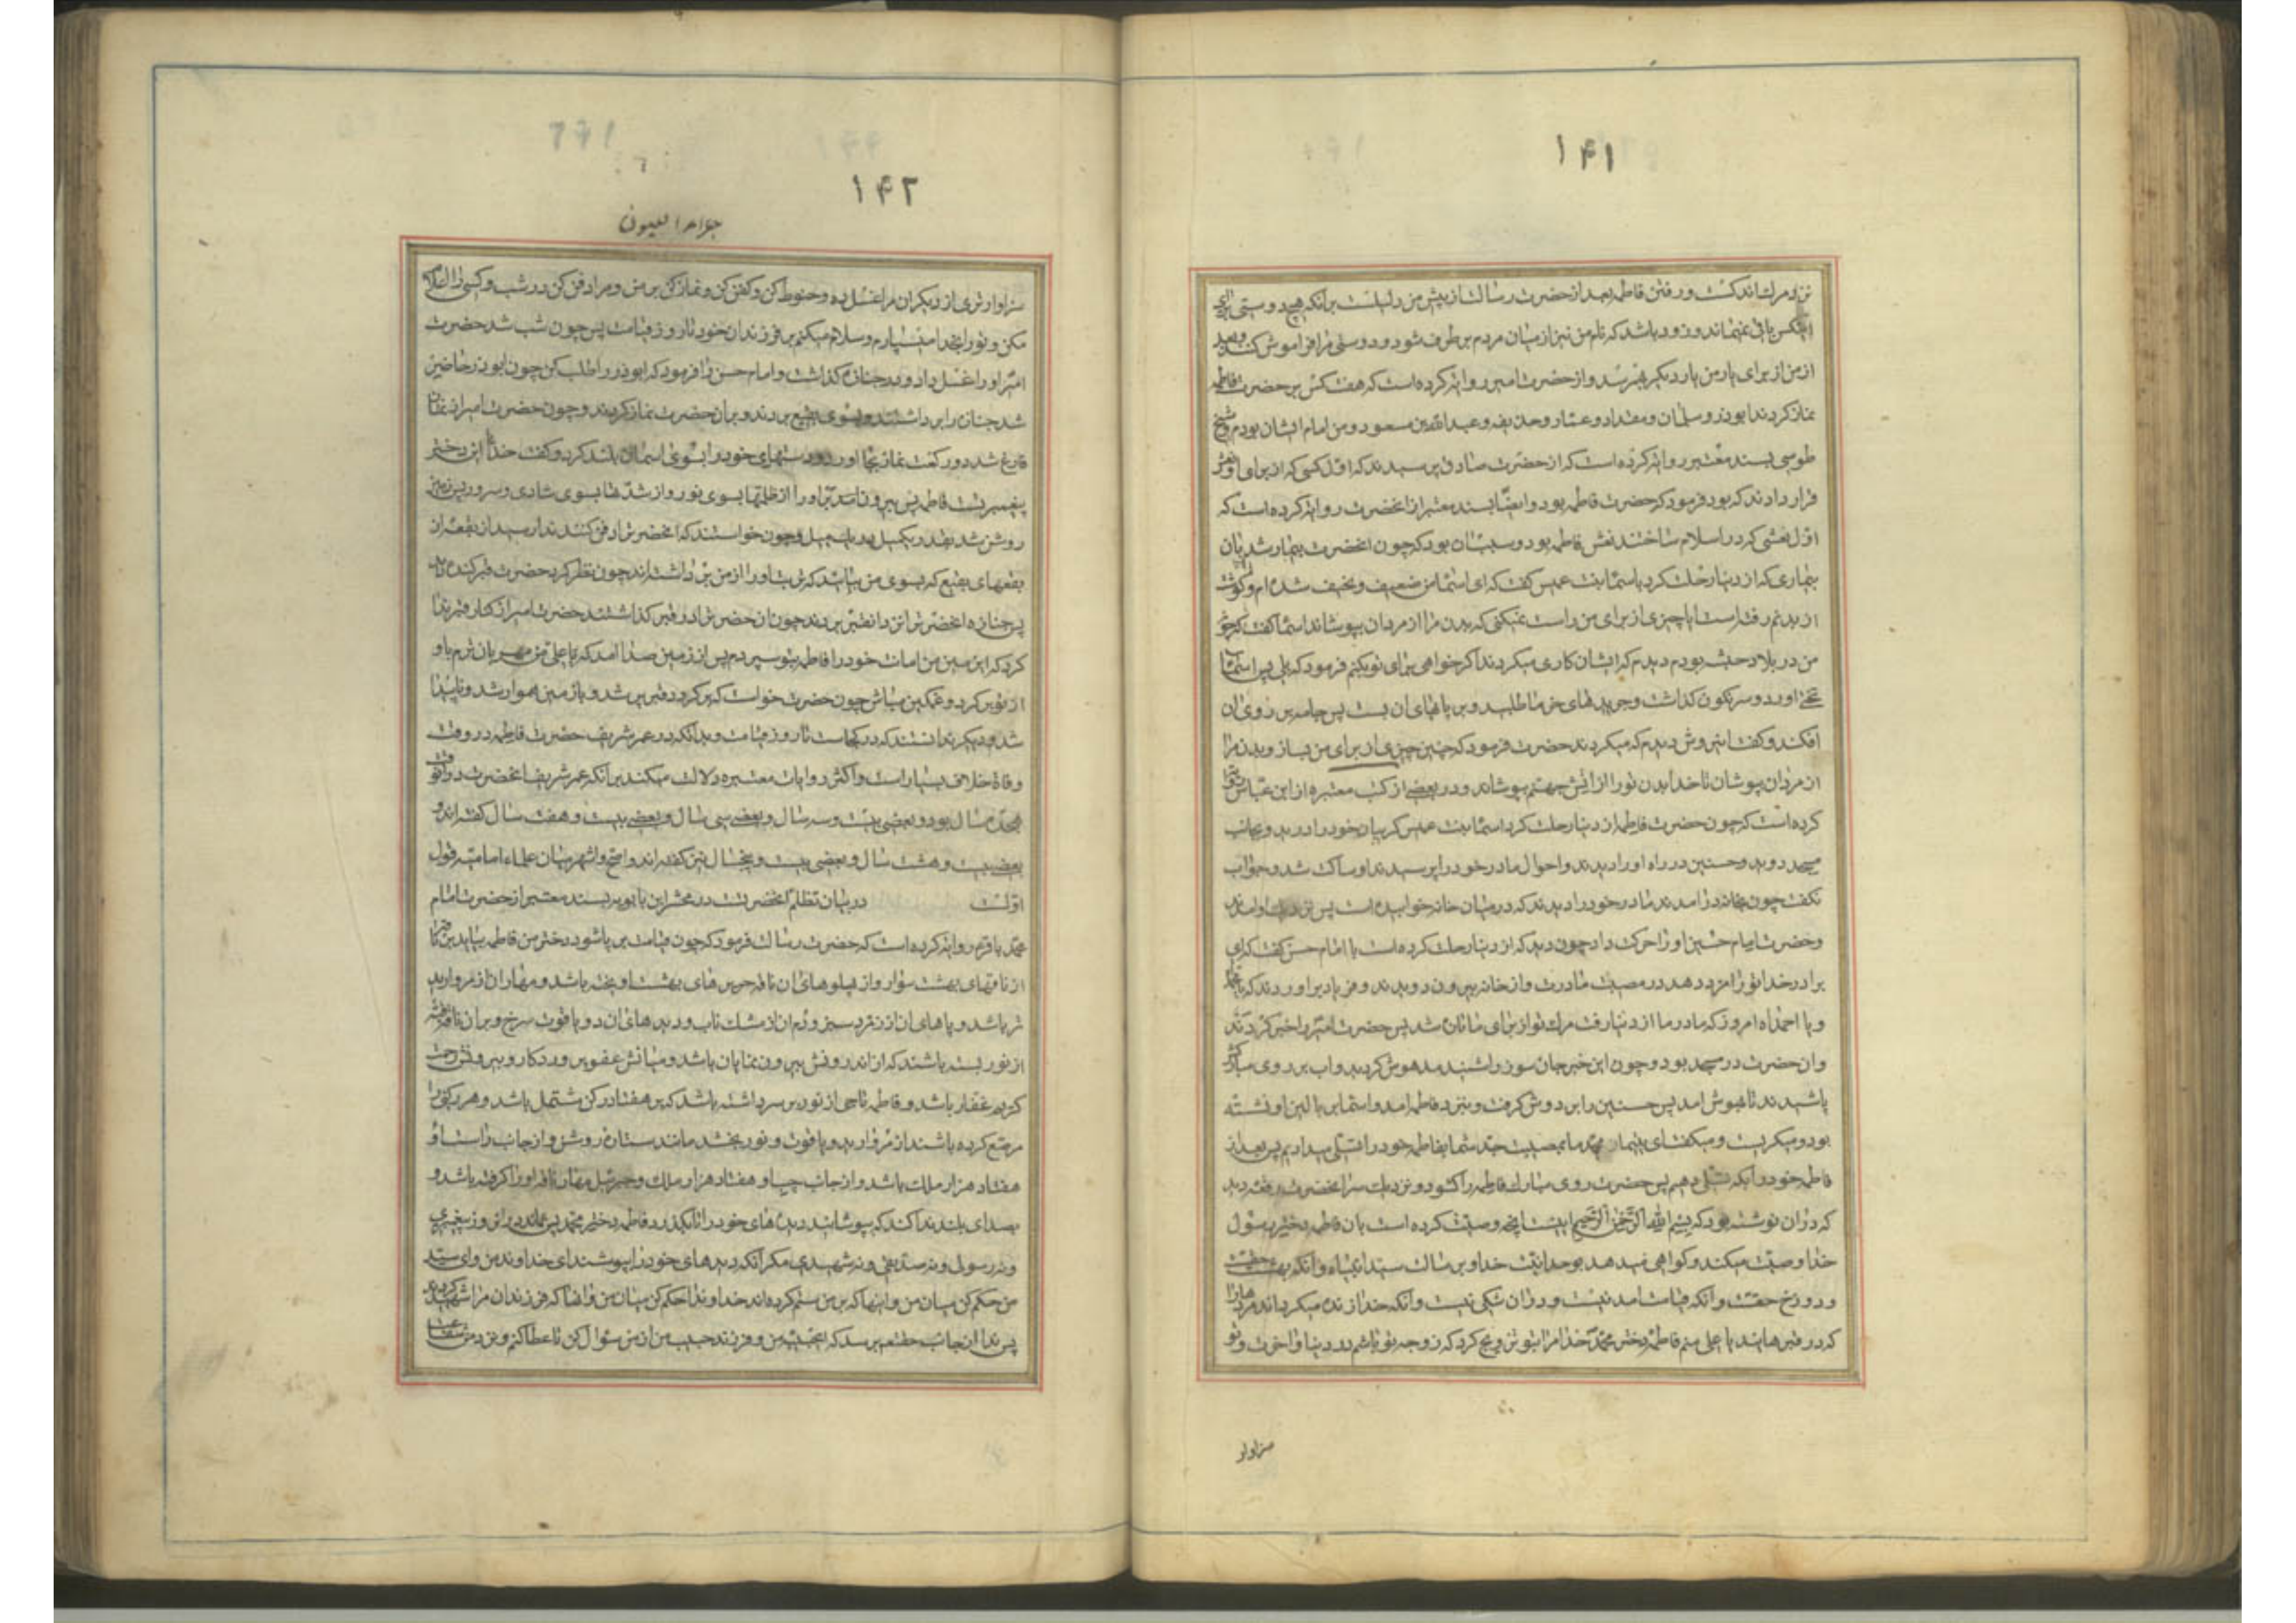 ۱۴۱
نزد مرك اندكست و رفتن فاطمه بعد از حضرت رسالت از پیش من دلیلست برانكه هیچ دوستی برای
باقی نمیماند و زود باشد كه نام من نیز از میان مردم بر طرف شود و دوستی مرا فراموش كنند و بعد
از من از برای یار من یار دیكر بهم رسد و از حضرت امیر روایة كرده است كه هفت كس بر حضرت فاطمه
نماز كردند ابوذر و سلمان و مقداد و عمار و حذیفه و عبدالله بن مسعود و من امام ایشان بودم و شیخ
طوسی بسند معتبر روایة كرده است كه از حضرت صادق پرسیدند كه اول كسی كه از برای او نعش
قرار دادند كه بود فرمود كه حضرت فاطمه بود و ایضا بسند معتبر از انحضرت روایة كرده است كه
اول نعشی كه در اسلام ساختند نعش فاطمه بود و سببش ان بود كه چون انحضرت بیمار شد بان
بیماری كه از دنیا رحلت كرد باسما بنت عمیس كفت كه ای اسما من ضعیف و نحیف شده ام و كوشت
از بدنم رفته است ایا چیزی از برای من راست نمیكنی كه بدن مرا از مردان بپوشاند اسما كفت كه چون
من در بلاد حبشه بودم دیدم كه ایشان كاری میكردند اكر خواهی برای تو بكنم فرمود كه بلی پس اسما
تختی اورد و سرنكون كذاشت و جریدهای خرما طلبید و بر پاهای ان بست پس جامه بر روی ان
افكند و كفت این روش دیدم كه میكردند حضرت فرمود كه چنین چیزی از برای من بساز و بدن مرا
از مردان بپوشان تا خدا بدن تو را از اتش جهنم بپوشاند و در بعضی از كتب معتبره از ابن عباس روایة
كرده است كه چون حضرت فاطمه از دنیا رحلت كرد اسما بنت عمیس كریبان خود را درید و بجانب
مسجد دوید و حسنین در راه او را دیدند و احوال مادر خود را پرسیدند او ساكت شد و جواب
نكفت چون بخانه در امدند مادر خود را دیدند كه در میان خانه خوابیده است پس نزدیك او امدند
و حضرت امام حسین او را حركت داد چون دید كه از دنیا رحلت كرده است با امام حسن كفت كه ای
برادر خدا تو را مزد دهد در مصیبت مادرت و از خانه بیرون دویدند و فریاد براوردند كه یا محمداه
و یا احمداه امروز كه مادر ما از دنیا رفت مرك تو از برای ما تازه شد پس حضرت امیر را خبر كردند
و ان حضرت در مسجد بود و چون این خبر جان سوز را شنید مدهوش كردید و اب بر روی مباركش
پاشیدند تا بهوش امد پس حسنین را بر دوش كرفت و بنزد فاطمه امد و اسما بر بالین او نشسته
بود و میكریست و میكفت ای یتیمان محمد ما بمصیبت جد شما بفاطمه خود را تسلی میدادیم پس بعد از
فاطمه خود را بكه تسلی دهیم پس حضرت روی مبارك فاطمه را كشود و نزدیك سر انحضرت رقعه دید
كه در ان نوشته بود كه بسم الله الرحمن الرحیم اینست انچه وصیت كرده است بان فاطمه دختر رسول
خدا وصیت میكند و كواهی میدهد بوحدانیت خدا و برسالت سید انبیاء و انكه بهشت حقست
و دوزخ حقست و انكه قیامت امدنیست و در ان شكی نیست و انكه خدا زنده میكرداند مردهارا
كه در قبرهایند یا علی منم فاطمه دختر محمد خدا مرا بتو تزویج كرد كه زوجه تو باشم در دنیا و اخرت و تو
سزاوار
۱۴۲
جلاء العیون
سزاوار تری از دیكران مرا غسل ده و حنوط كن و كفن كن و نماز كن بر من و مرا دفن كن در شب و كسی را اعلام
مكن و تو را بخدا میسپارم و سلام میكنم بر فرزندان خود تا روز قیامت پس چون شب شد حضرت
امیر او را غسل داد و در جنازه كذاشت و امام حسن را فرمود كه ابوذر را طلب كن چون ابوذر حاضر
شد جنازه را برداشتند و بسوی بقیع بردند و بر ان حضرت نماز كردند و چون حضرت امیر از نماز
فارغ شد دو ركعت نماز بجا اورد و دستهای خود را بسوی اسمان بلند كرد و كفت خدایا این دختر
پیغمبر تست فاطمه پس بیرون اوردی او را از ظلمتها بسوی نور و از شدتها بسوی شادی و سرور پس زمین
روشن شد بقدر یكمیل در یك میل و چون خواستند كه انحضرت را دفن كنند ندا رسید از بقعه از
بقعهای بقیع كه بسوی من بیائید كه تربت او را از من برداشته اند چون نظر كرد حضرت قبر كنده دید
پس جنازه انحضرت را نزد ان قبر بردند چون ان حضرت را در قبر كذاشتند حضرت امیر از كنار قبر ندا
كرد كه ای زمین من امانت خود را فاطمه بتو سپردم پس از زمین صدا امد كه یا علی من مهربان ترم باو
از تو بر كرد و غمكین مباش چون حضرت خواست كه بر كردد قبر پر شد و با زمین هموار شد و ناپیدا
شد و دیكر ندانستند كه در كجاست تا روز قیامت و بدانكه در عمر شریف حضرت فاطمه در وقت
وفاة خلاف بسیار است و اكثر روایات معتبره دلالت میكند برانكه عمر شریف انحضرت در انوقت
هیجده سال بود و بعضی بیست و سه سال و بعضی سی سال و بعضی بیست و هفت سال كفته اند و
بعضی بیست و هشت سال و بعضی بیست و پنجسال نیز كفته اند و اصح و اشهر میان علماء امامیه قول
اولست در بیان تظلم انحضرتست در محشر ابن بابویه بسند معتبر از حضرت امام
محمد باقر روایة كرده است كه حضرت رسالت فرمود كه چون قیامت بر پا شود دختر من فاطمه بیاید بر ناقة
از ناقهای بهشت سوار و از پهلوهای ان ناقه حریرهای بهشت اویخته باشد و مهار ان از مروارید
تر باشد و پاهای ان از زمرد سبز و دم ان از مشك ناب و دیدهای ان دو یاقوت سرخ و بر ان ناقه قبة
از نور بسته باشند كه از اندرونش بیرون نمایان باشد و میانش عفو پروردكار و بیرونش رحمت
كریم غفار باشد و فاطمه تاجی از نور بر سر داشته باشد كه بر هفتاد ركن مشتمل باشد و هر ركن را
مرصع كرده باشند از مروارید و یاقوت و نور بخشد مانند ستاره روشن و از جانب راست او
هفتاد هزار ملك باشد و از جانب چپ او هفتاد هزار ملك و جبرئیل مهار ناقه او را كرفته باشد و
بصدای بلند ندا كند كه بپوشانید دیدهای خود را تا بكذرد فاطمه دختر محمد پس نماند در ان روز پیغمبری
و نه رسولی و نه صدیقی و نه شهیدی مكر انكه دیدهای خود را بپوشند ای خداوند من و ای سید
من حكم كن میان من و انها كه بر من ستم كرده اند خداوندا حكم كن میان من و انها كه فرزندان مرا شهید كردند
پس ندا از جانب حقتعالی برسد كه ای حبیبه من و فرزند حبیب من از من سؤال كن تا عطا كنم و نزد من شفاعت